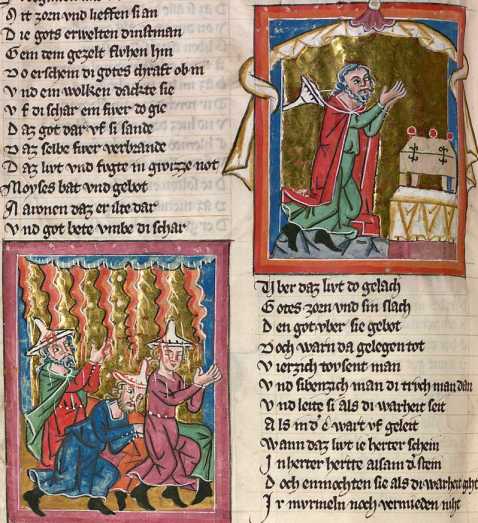 Mit zorn vnd lieffen si an
Die gots erwelten dinstman
Gem dem gezelt fluhen hin
Do erschein di gotes chraft ob in
Vnd ein wolken dachte sie
Vf di schar ein fiver do gie
Daz got dar vf si sande
Daz selbe fiver verbrande
Daz livt vnd fugte in grozze not
Moyses bat vnd gebot
Aaronen daz er ilte dar
Vnd got bete vmbe di schar
Vber daz livt do gelach
Gotes zorn vnd sin slach
Den got vber sie gebot
Doch warn da gelegen tot
Vierzich tovsent man
Vnd sibenzich man di trich man dan
Vnd leite si als di warheit seit
Als in d e wart vf geleit
Wann daz livt ie herter schein
In herter hertte alsam d stein
Doch enmochten sie als di warheit giht
Ir mvrmeln noch vermieden niht